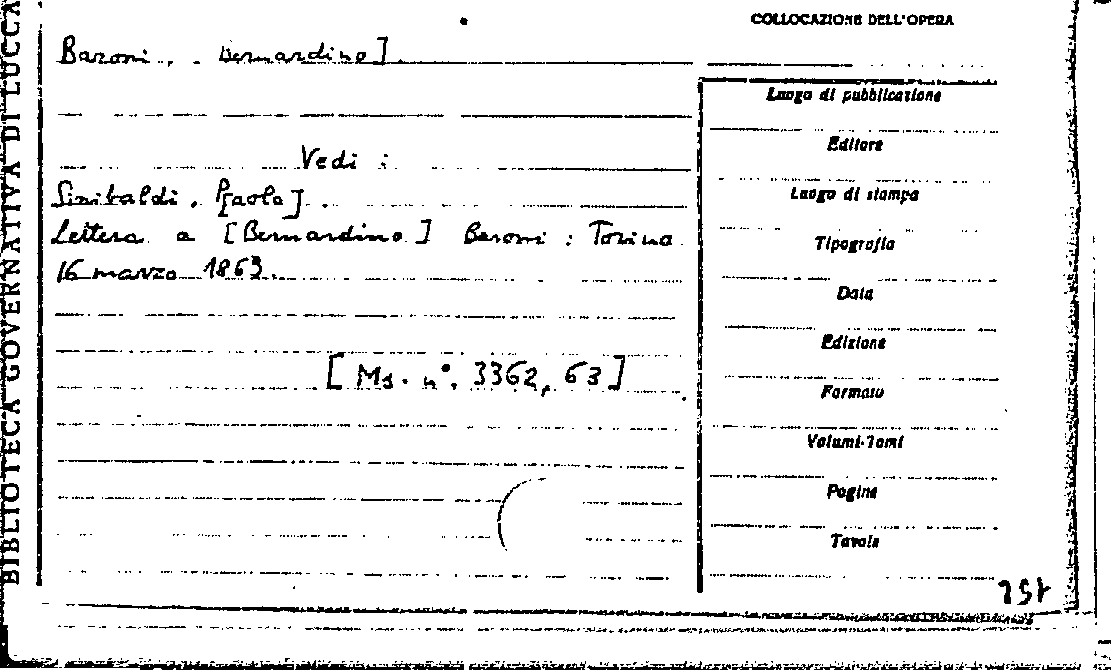 BIBLIOTECA GOVERNATIVA DI LUCCA
COLLOCAZIONE DELL'OPERA
Baroni, . Bernardino].
Vedi :
Sinibaldi, P[aolo].
Lettera a [Bernardino] Baroni : Torino
16 marzo 1863.
[Ms. n°. 3362, 63]
Luogo di pubblicazione
Editore
Luogo di stampa
Tipografia
Data
Edizione
Formato
Volumi-Tomi
Pagine
Tavole